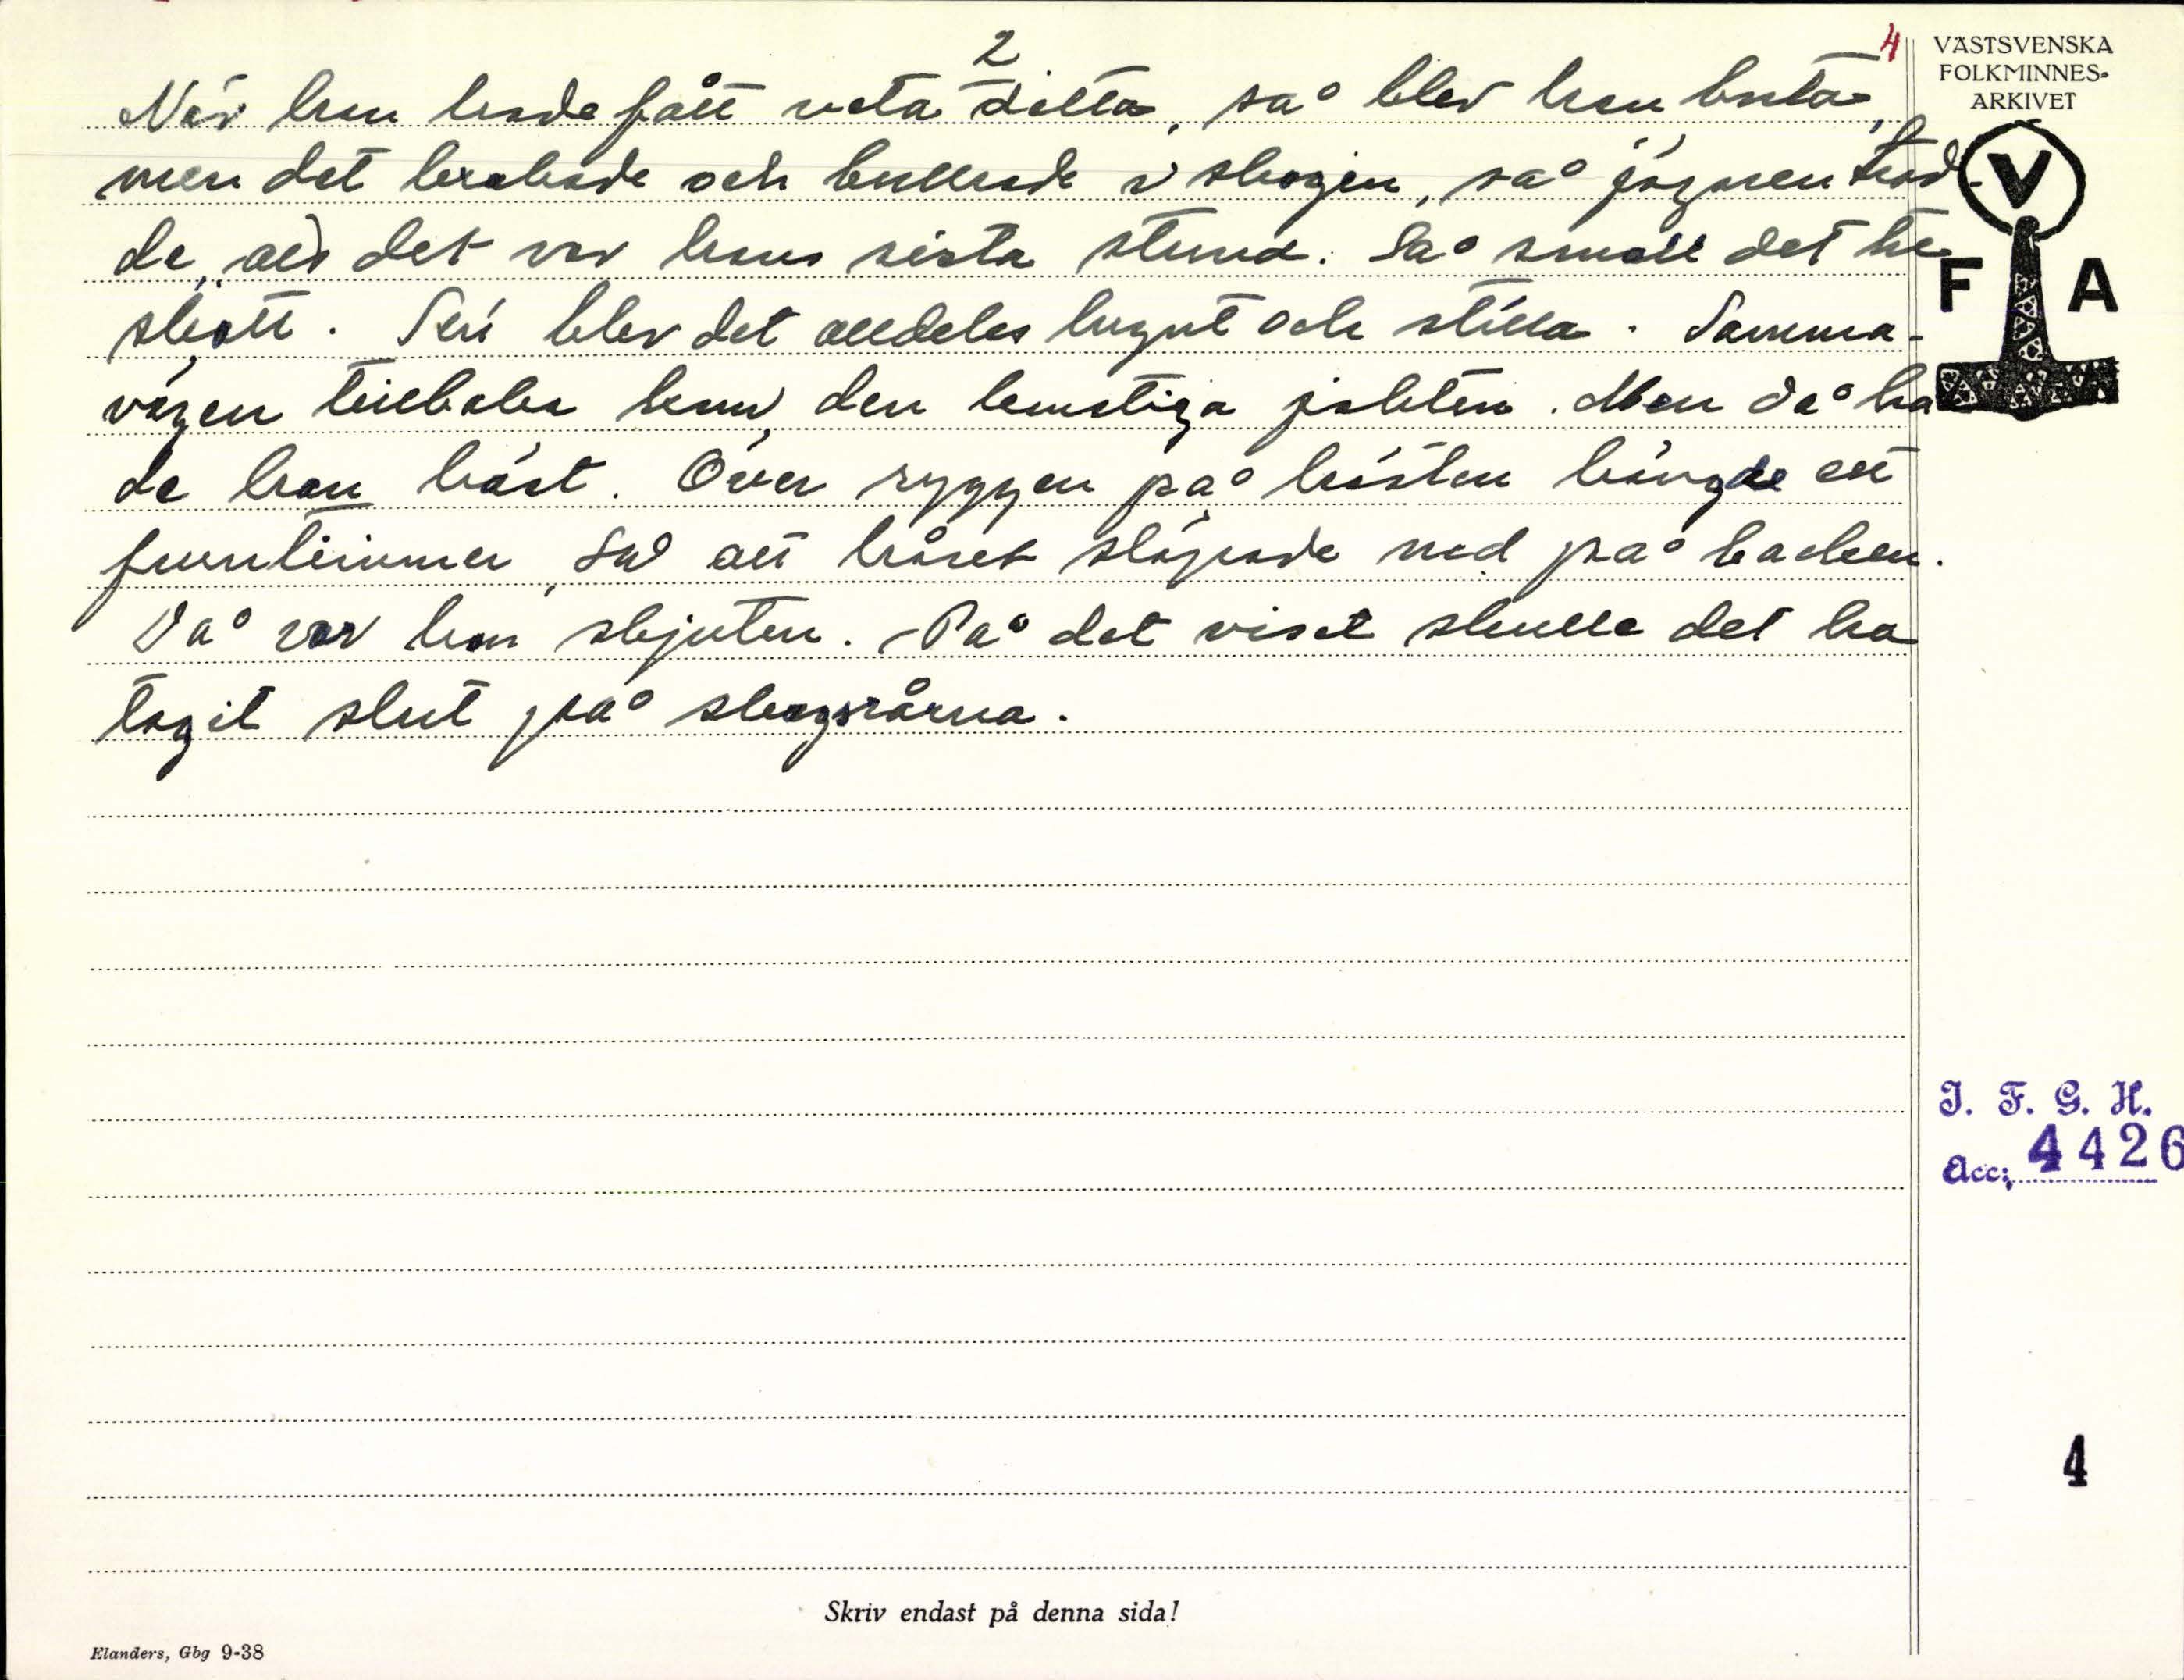 2
4
När han hade fått veta detta, så blev han borta,
men det brakade och bullrade i skogen, så jägaren trod-
de, att det var hans sista stund. Så small det tre
skott. Sen blev det alldeles lugnt och stilla. Samma
vägen tillbaka kom den konstiga jakten. Men då ha
de han häst. Över ryggen på hästen hängde ett
fruntimmer, så att håret släpade ned på backen.
Då var hon skjuten. På det viset skulle det ha
tagit slut på skogsrårna.
VÄSTSVENSKA
FOLKMINNES-
ARKIVET
V
F A
I. F. G. H.
Acc: 4426
4
Skriv endast på denna sida!
Elanders, Gbg 9-38